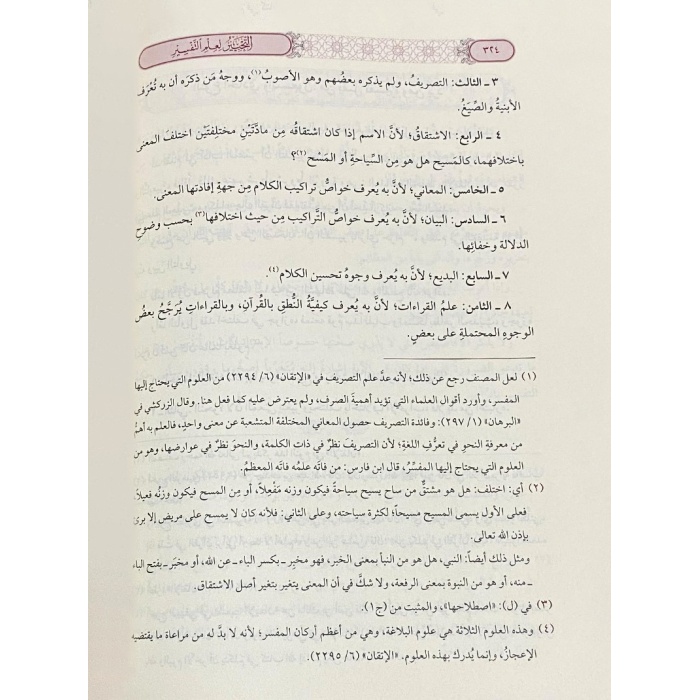 ٣٢٤
التحبير لعلم التفسير
٣ ـ الثالث: التصريف، ولم يذكره بعضُهم وهو الأصوبُ(١)، ووجهُ مَن ذكرَه أن به تُعْرَف
الأبنيةُ والصِّيَغُ.
٤ ـ الرابع: الاشتقاق؛ لأنَّ الاسم إذا كان اشتقاقُه مِن مادَّتَيْنِ مختلِفتَين اختلف المعنى
باختلافهما، كالمَسيح هل هو مِن السِّياحةِ أو المَسْح(٢)؟
٥ ـ الخامس: المعاني؛ لأنَّ به يُعرف خواصُّ تراكيب الكلام مِن جهةِ إفادتها المعنى.
٦ ـ السادس: البيان؛ لأنَّ به يُعرف خواصُّ التَّراكيبِ مِن حيث اختلافها(٣) بحسب وضوحِ
الدلالة وخفائِها.
٧ ـ السابع: البديع؛ لأنَّ به يُعرف وجوهُ تحسين الكلام(٤).
٨ ـ الثامن: علمُ القراءات؛ لأنَّ به يُعرف كيفيَّةُ النُّطقِ بالقُرآنِ، وبالقراءاتِ يُرَجَّحُ بعضُ
الوجوهِ المحتملةِ على بعضٍ.
(١) لعل المصنف رجع عن ذلك؛ لأنه عدَّ علم التصريف في «الإتقان» (٦/ ٢٢٩٤) من العلوم التي يحتاج إليها
المفسر، وأورد أقوال العلماء التي تؤيد أهمية الصرف، ولم يعترض عليه كما فعل هنا. وقال الزركشي في
«البرهان» (١/ ٢٩٧): وفائدة التصريف حصول المعاني المختلفة المتشعبة عن معنى واحد، فالعلم به أهمُّ
من معرفةِ النحوِ في تعرُّفِ اللغةِ؛ لأن التصريفَ نظرٌ في ذات الكلمة، والنحوَ نظرٌ في عوارضها، وهو من
العلوم التي يحتاج إليها المفسِّرُ، قال ابن فارس: من فاتَه علمُه فاتَه المعظمُ.
(٢) أي: اختلف: هل هو مشتقٌّ من ساح يسيح سياحةً فيكون وزنه مَفْعِلاً، أو مِن المسح فيكون وزنُه فعيلاً
فعلى الأول يسمى المسيح مسيحاً؛ لكثرة سياحته، وعلى الثاني: فلأنه كان لا يمسح على مريض إلا برئ
بإذن الله تعالى.
ومثل ذلك أيضاً: النبي، هل هو من النبأ بمعنى الخبر، فهو مخبِر ـ بكسر الباء ـ عن الله، أو مخبَر ـ بفتح الباء
ـ منه، أو هو من النبوة بمعنى الرفعة، ولا شكَّ في أن المعنى يتغير بتغير أصل الاشتقاق.
(٣) في (ل): «اصطلاحها»، والمثبت من (ج١).
(٤) وهذه العلوم الثلاثة هي علوم البلاغة، وهي من أعظم أركان المفسر؛ لأنه لا بدَّ له من مراعاة ما يقتضيه
الإعجازُ، وإنما يُدرك بهذه العلوم. «الإتقان» (٦/ ٢٢٩٥).